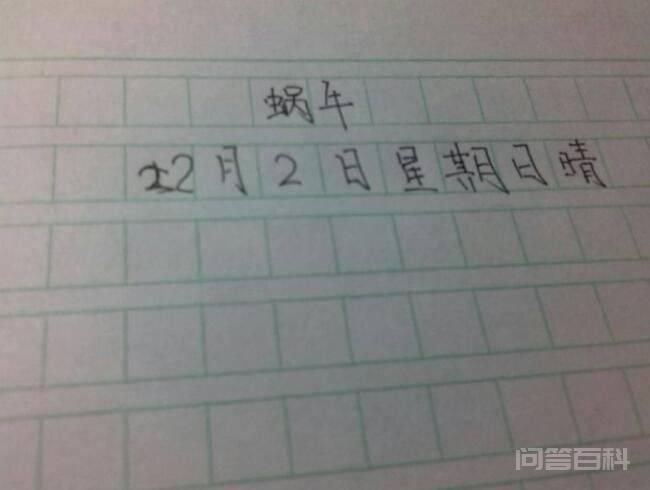 蜗牛
12月2日星期日晴
问答百科